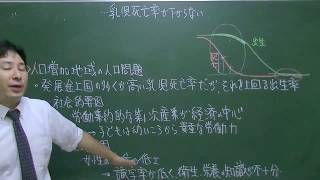 乳児死亡率が下がらない
出生
人口増加地域の人口問題
・発展途上国の多くが高い乳児死亡率だが、それを上回る出生率
社会的要因
労働集約的な第1次産業が経済の中心
→子どもは幼いころから貴重な労働力
女性の
→識字率が低く、衛生、栄養の知識が不十分